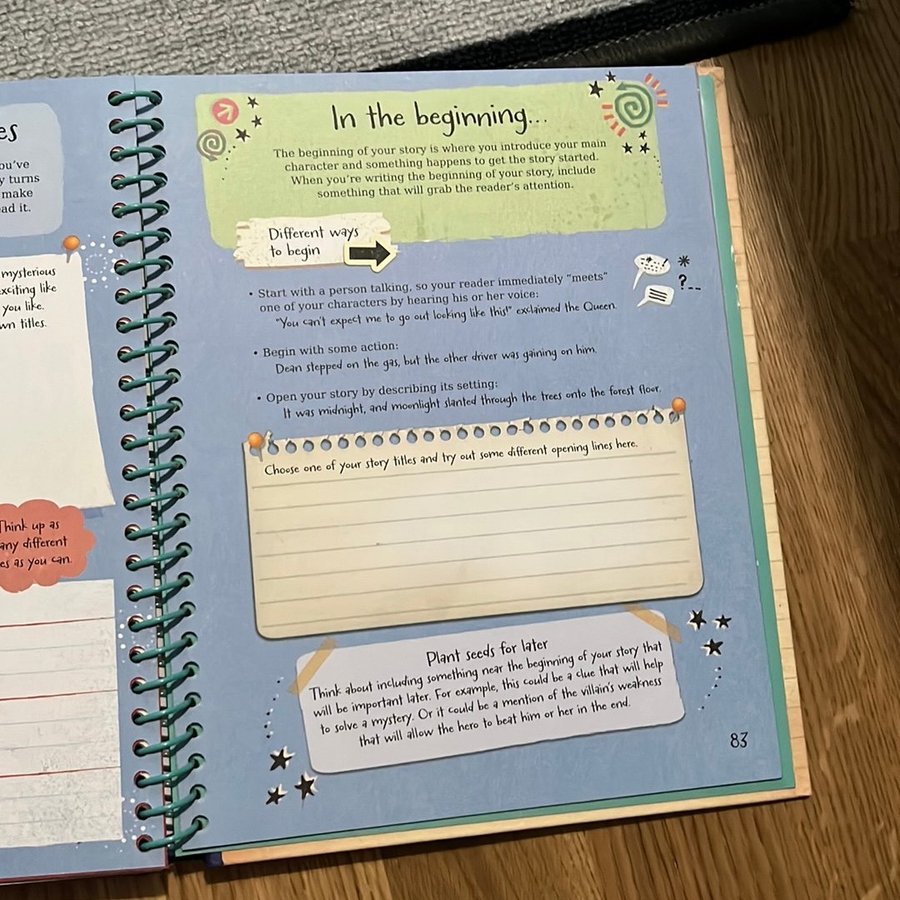 es
ou've
y turns
make
ad it.
mysterious
xciting like
you like.
wn titles.
Think up as
any different
es as you can.
In the beginning...
The beginning of your story is where you introduce your main
character and something happens to get the story started.
When you're writing the beginning of your story, include
something that will grab the reader's attention.
Different ways
to begin
• Start with a person talking, so your reader immediately "meets"
one of your characters by hearing his or her voice:
"You can't expect me to go out looking like this!" exclaimed the Queen.
• Begin with some action:
Dean stepped on the gas, but the other driver was gaining on him.
• Open your story by describing its setting:
It was midnight, and moonlight slanted through the trees onto the forest floor.
Choose one of your story titles and try out some different opening lines here.
Plant seeds for later
Think about including something near the beginning of your story that
will be important later. For example, this could be a clue that will help
to solve a mystery. Or it could be a mention of the villain's weakness
that will allow the hero to beat him or her in the end.
83